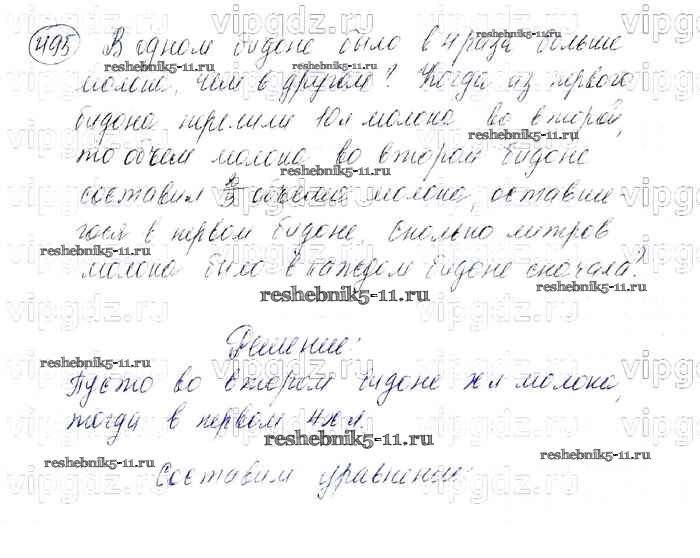 495 В одном бидоне было в 4 раза больше
reshebnik5-11.ru reshebnik5-11.ru
молока, чем в другом? Когда из первого
бидона перелили 10 л молока во второй,
reshebnik5-11.ru
то объем молока во втором бидоне
составил 2/3 объема молока, оставше-
гося в первом бидоне. Сколько литров
reshebnik5-11.ru
молока было в каждом бидоне сначала?
reshebnik5-11.ru
Решение:
reshebnik5-11.ru
Пусть во втором бидоне x л молока,
тогда в первом 4x л.
reshebnik5-11.ru
reshebnik5-11.ru reshebnik5-11.ru
Составим уравнение:
vipgdz.ru